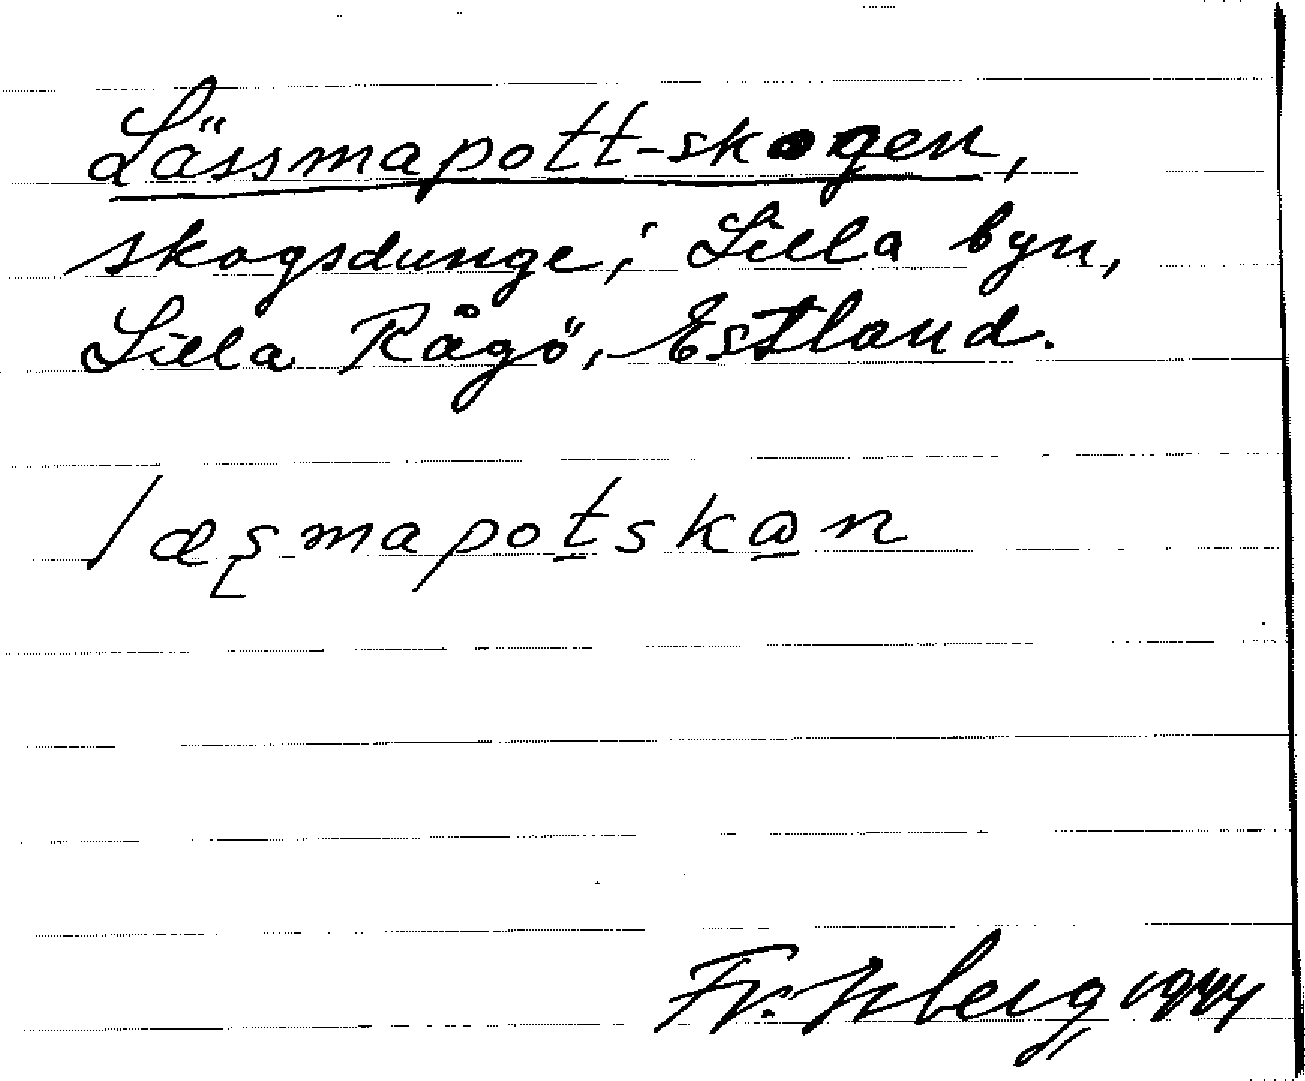 Lässmapott-skogen,
skogsdunge, i Lilla byn,
Lilla Rågö, Estland.
læsmapotskan
1944